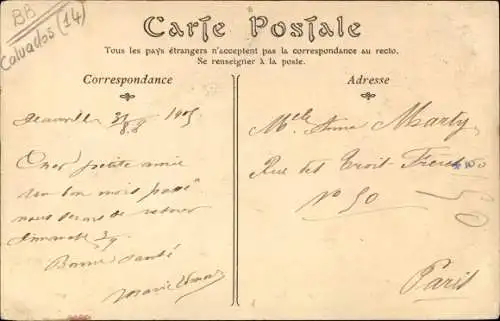 BB
Calvados (14)
Carte Postale
Tous les pays étrangers n'acceptent pas la correspondance au recto.
Se renseigner à la poste.
Correspondance
Deauville 31/8 1905
Cher petite amie
Un bon mois passé
nous de retour
dimanche 3/9
Bonne santé
Marie
Adresse
Mlle Anna Marty
Rue des Trois Freres
No 50
Paris